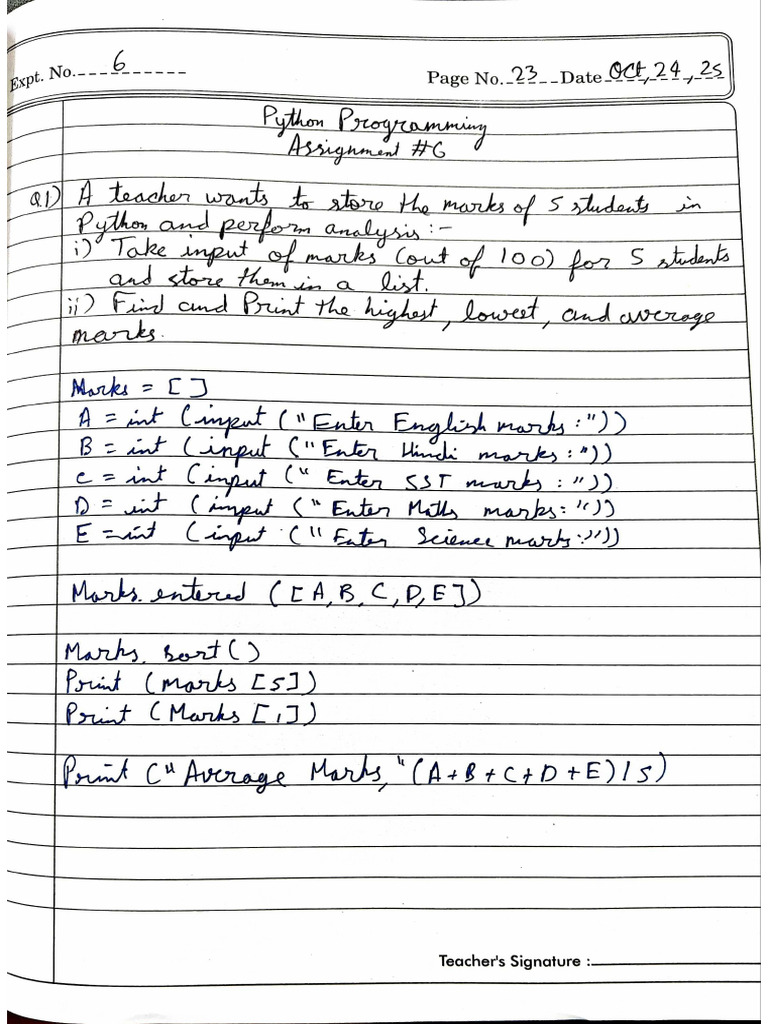 Expt. No. 6
Page No. 23 Date Oct, 24, 25
Python Programming
Assignment #6
Q.1) A teacher wants to store the marks of 5 students in
Python and perform analysis :-
i) Take input of marks (out of 100) for 5 students
and store them in a list.
ii) Find and Print the highest, lowest, and average
marks.
Marks = [ ]
A = int (input ("Enter English marks :"))
B = int (input ("Enter Hindi marks :"))
c = int (input (" Enter SST marks : "))
D = int (input (" Enter Maths marks: "))
E = int (input (" Enter Science marks :"))
Marks. entered ([A, B, C, D, E])
Marks. sort ( )
Print (marks [5])
Print (Marks [1])
Print (" Average Marks, " (A + B + C + D + E) / 5)
Teacher's Signature :